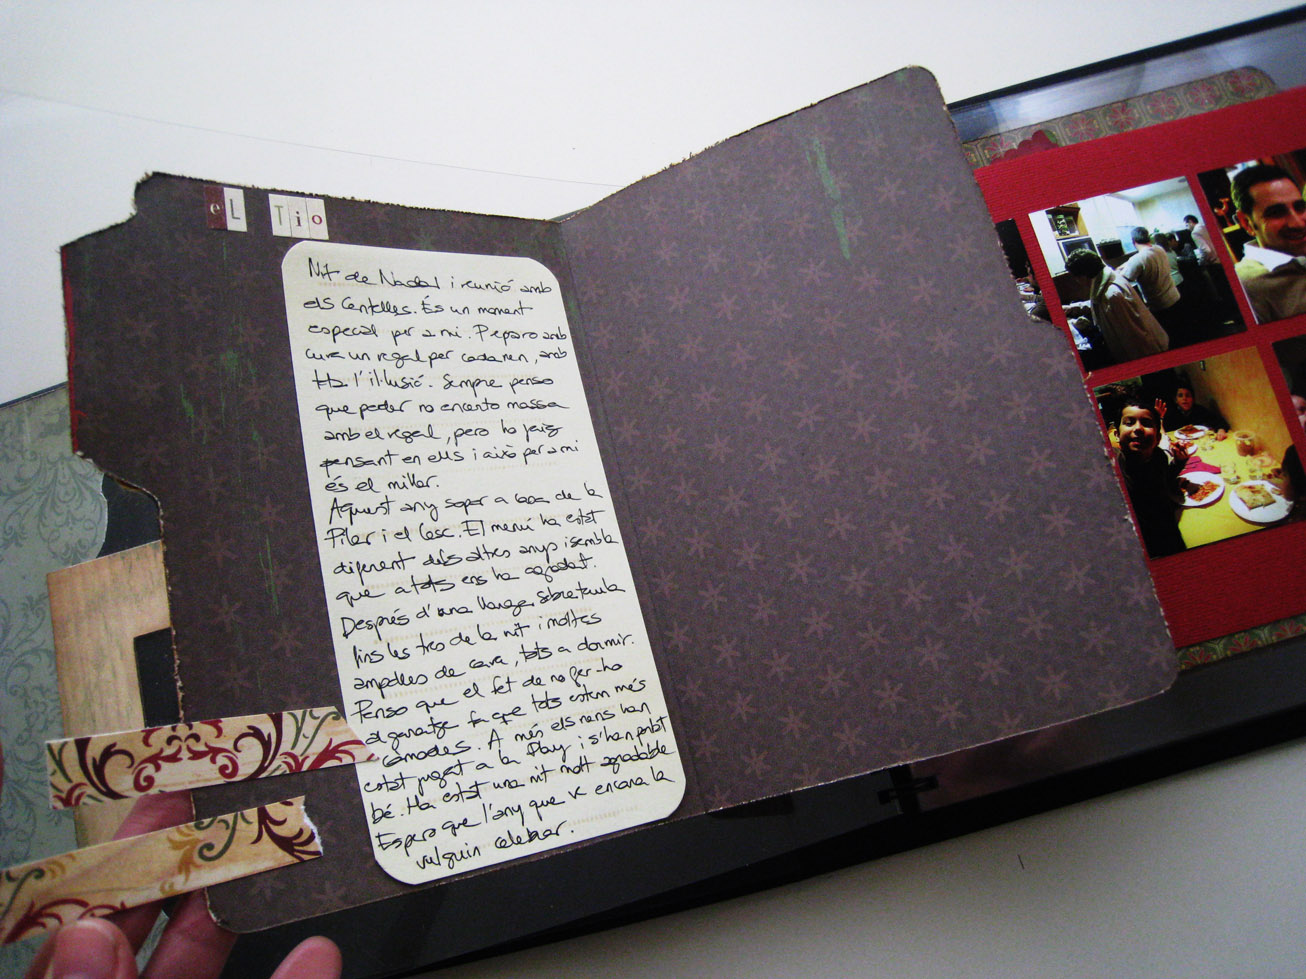 eL Tio
Nit de Nadal i reunió amb
els Centelles. És un moment
especial per a mi. Preparo amb
cura un regal per cada nen, amb
tota l'il·lusió. Sempre penso
que poder no encerto massa
amb el regal, pero ho faig
pensant en ells i això per a mi
és el millor.
Aquest any sopar a casa de la
Pilar i el Cesc. El menú ha estat
diferent dels altres anys i sembla
que a tots ens ha agradat.
Després d'una llarga sobretaula
fins les tres de la nit i moltes
ampolles de cava, tots a dormir.
Penso que el fet de no fer-ho
al garatge fa que tots estem més
còmodes. A més els nens han
estat jugat a la Play i s'han portat
bé. Ha estat una nit molt agradable
Espero que l'any que ve encara la
vulguin celebrar.